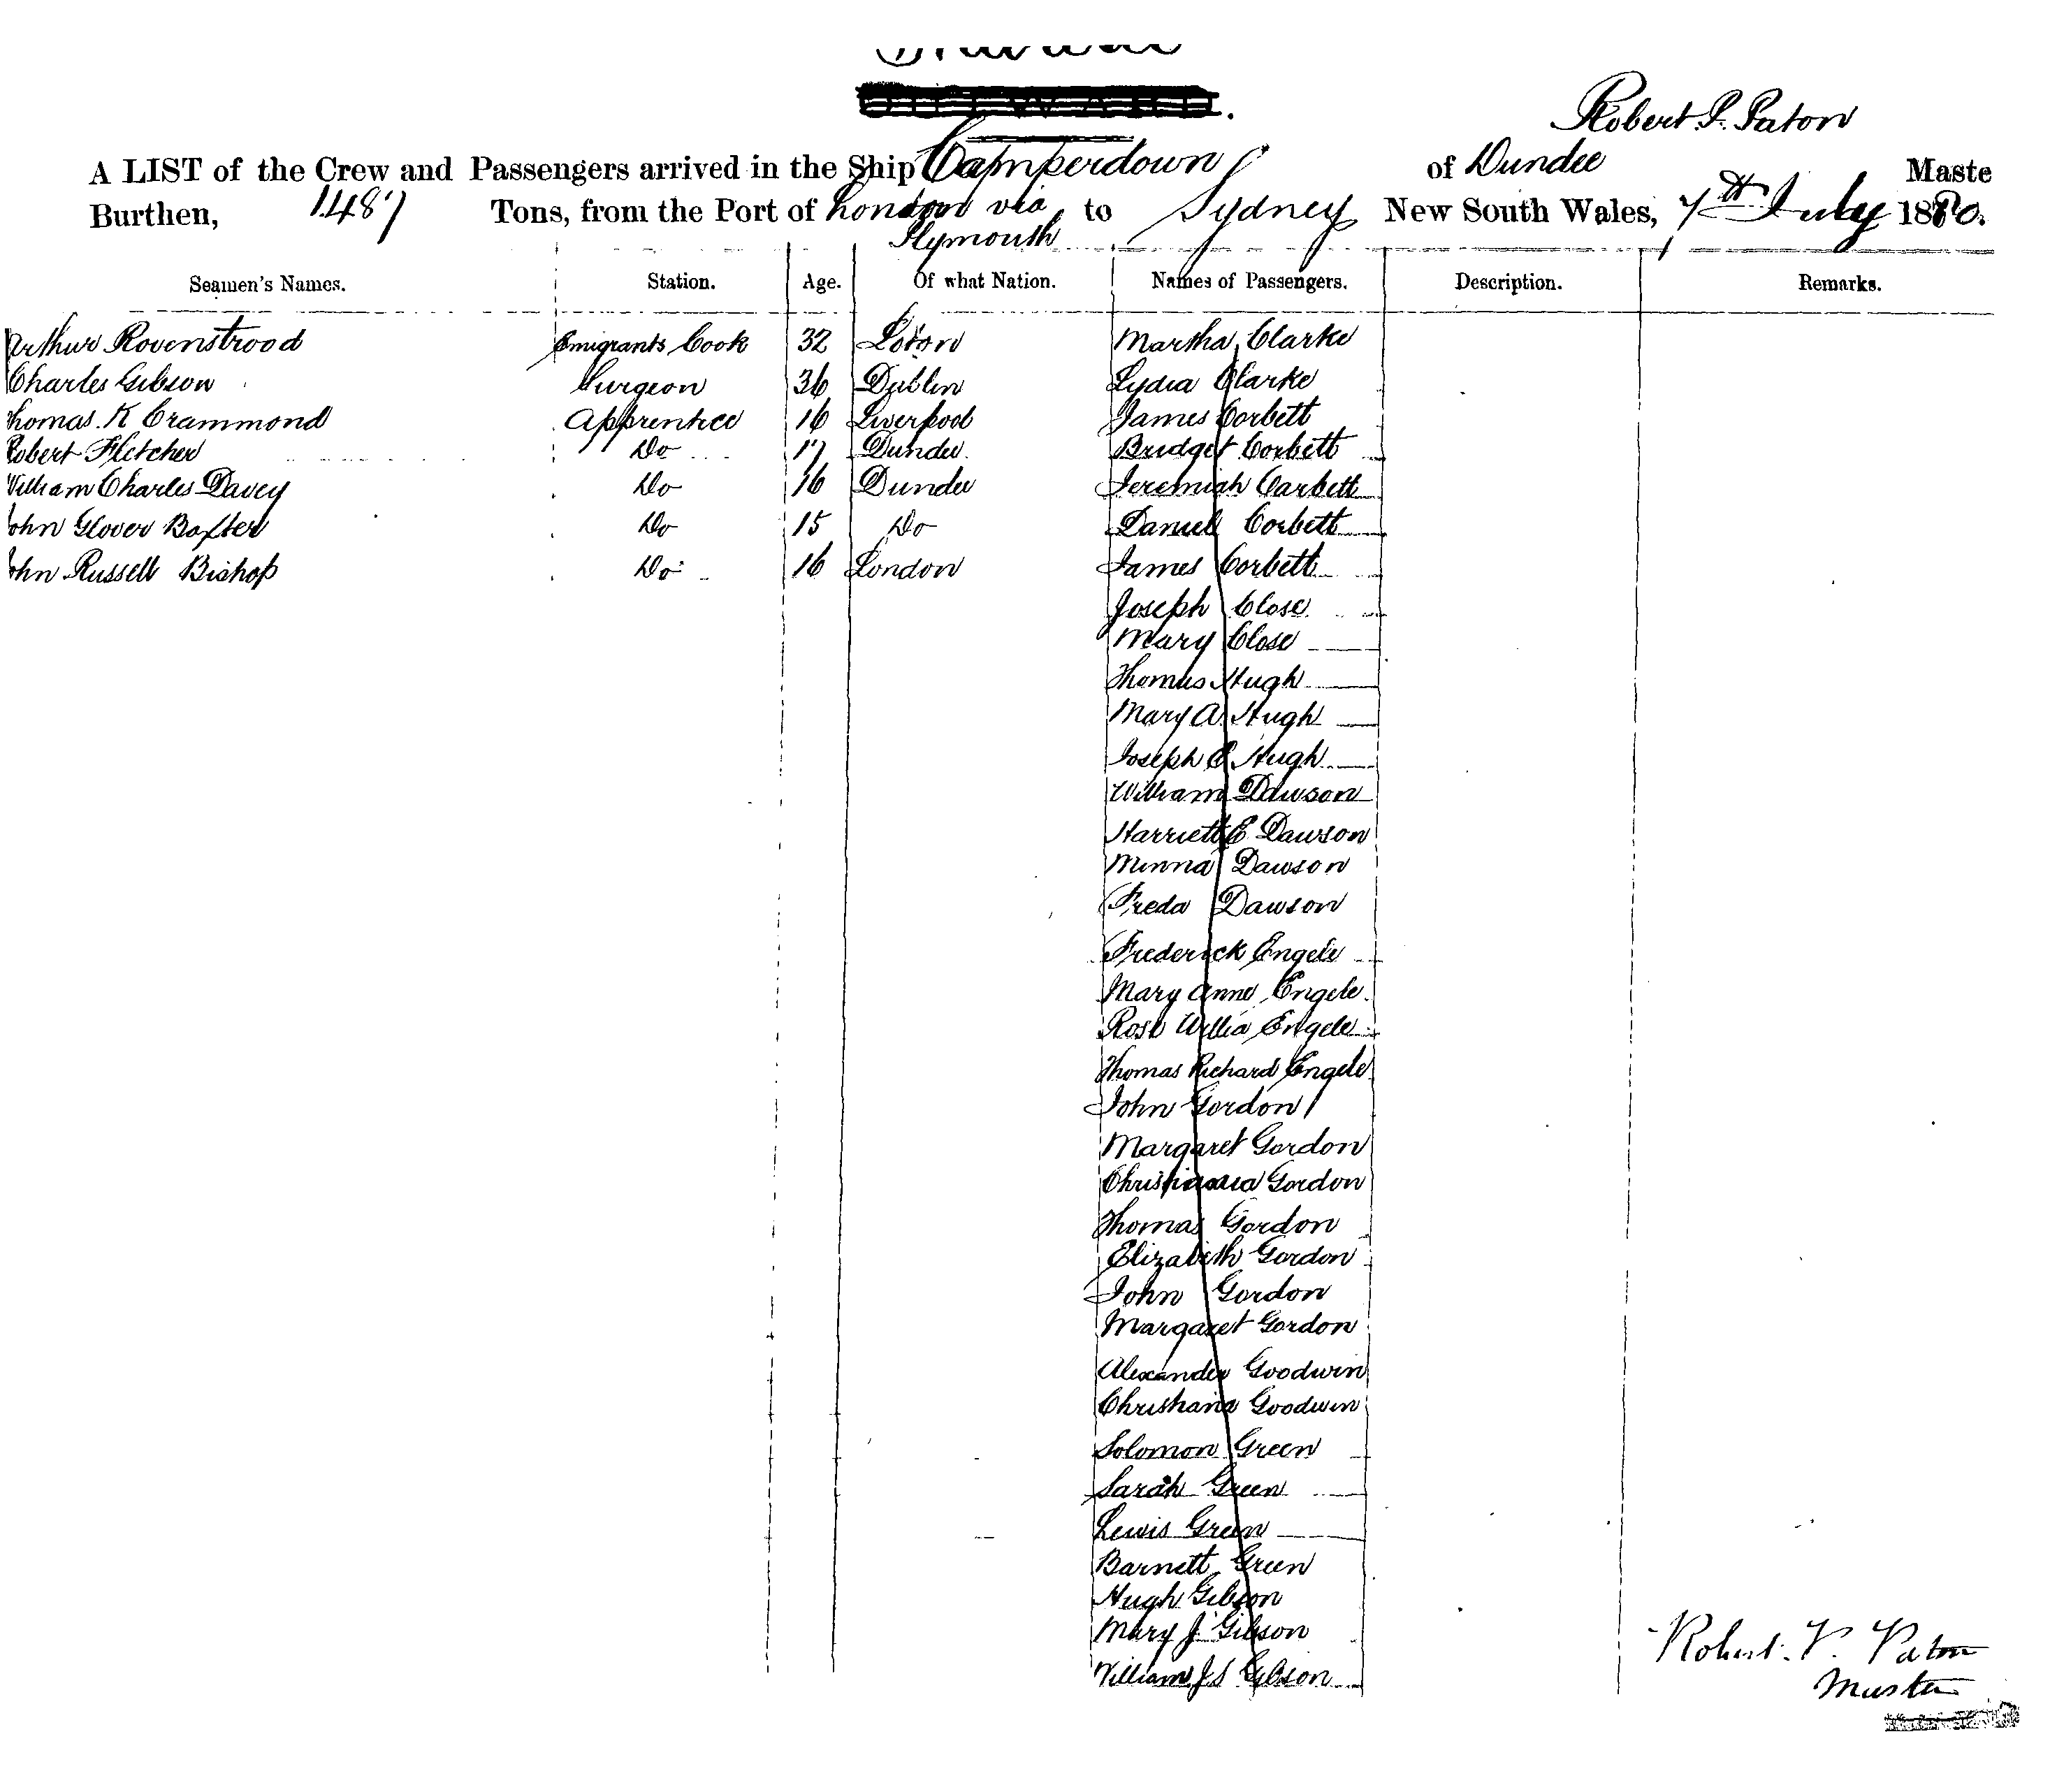 Robert P. Paton
A LIST of the Crew and Passengers arrived in the Ship Camperdown of Dundee Maste
Burthen, 1487 Tons, from the Port of London via Plymouth to Sydney New South Wales, 7th July 1880.
Seamen's Names. Station. Age. Of what Nation. Names of Passengers. Description. Remarks.
Arthur Rovenstrood Emigrants Cook 32 Martha Clarke
Charles Gibson Surgeon 36 Dublin Lydia Clarke
homas K Crammond Apprentice 16 Liverpool James Corbett
Robert Fletcher Do 17 Dundee Bridget Corbett
William Charles Davey Do 16 Dundee Jeremiah Carbett
ohn Glover Baxter Do 15 Do Daniel Corbett
ohn Russell Bishop Do 16 London James Corbett
Joseph Close
Mary Close
Thomas Hugh
Mary A Hugh
Joseph E Hugh
William Dawson
Harriett E Dawson
Minna Dawson
Freda Dawson
Frederick Engele
Mary Anne Engele
Rose Engele
Thomas Richard Engele
John Gordon
Margaret Gordon
Gordon
Thomas Gordon
Elizabeth Gordon
John Gordon
Margaret Gordon
Alexander Goodwin
Christiana Goodwin
Solomon Green
Sarah Green
Lewis Green
Barnett Green
Hugh Gibson
Mary J Gibson
William J S Gibson
Robert P. Paton
Master